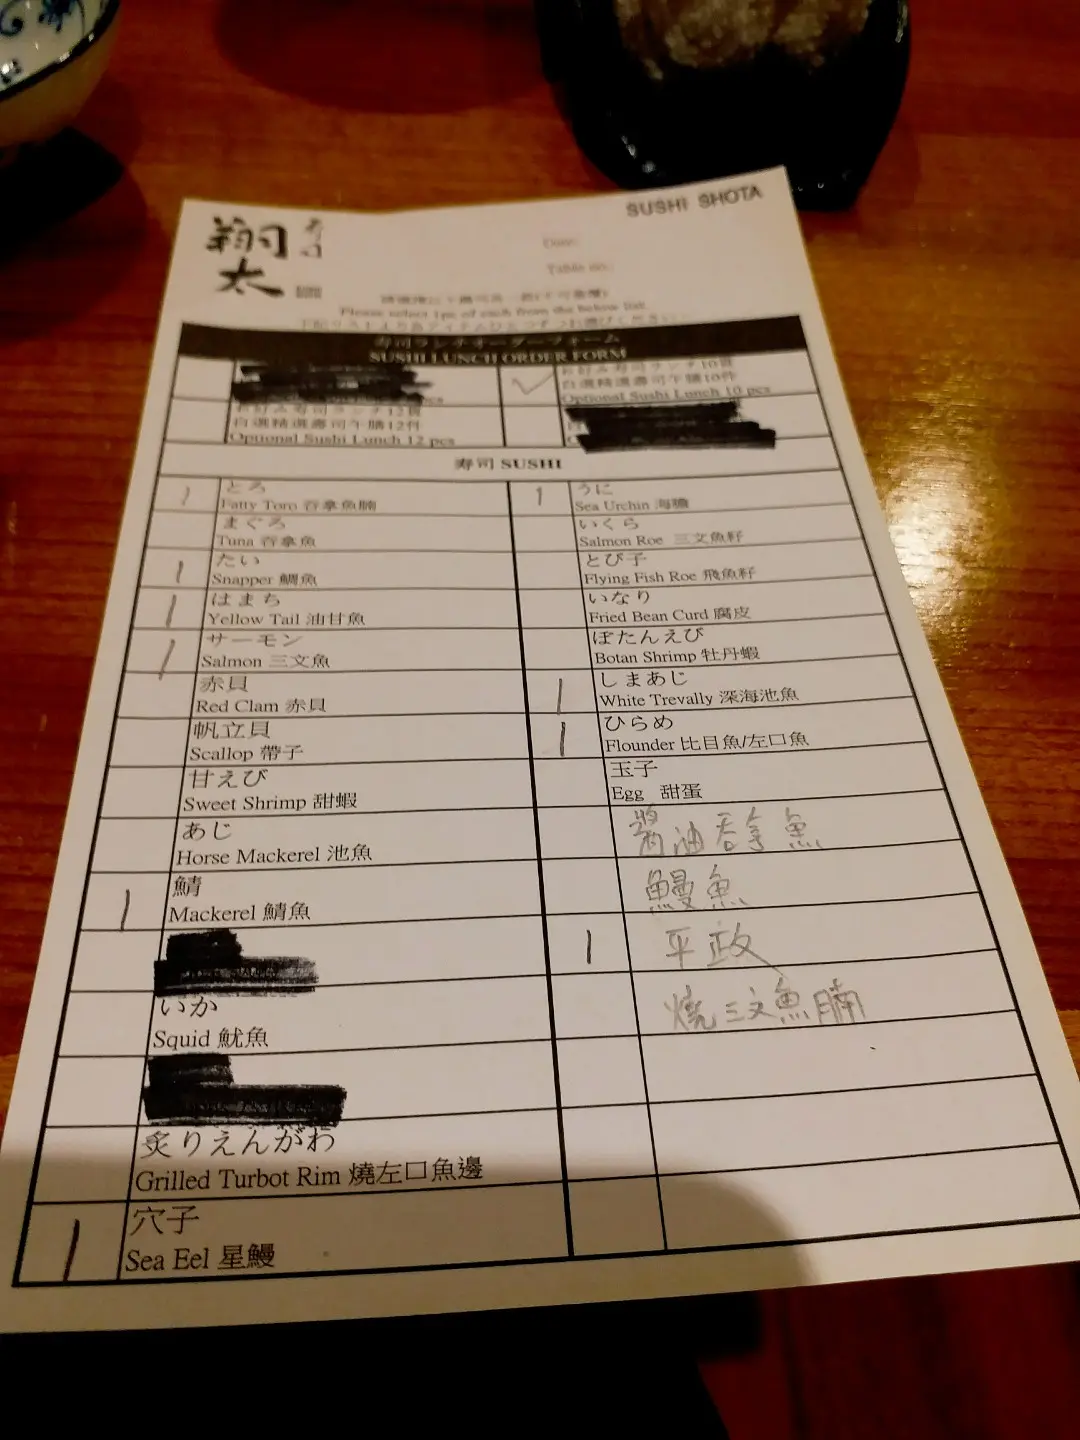 SUSHI SHOTA
翔太
寿司
Date:
Table no.:
Please select 1pc of each from the below list
寿司ランチオーダーフォーム
SUSHI LUNCH ORDER FORM
お好み寿司ランチ10貫
自選精選壽司午膳10件
Optional Sushi Lunch 10 pcs
お好み寿司ランチ12貫
自選精選壽司午膳12件
Optional Sushi Lunch 12 pcs
寿司 SUSHI
1 とろ
Fatty Toro 吞拿魚腩
まぐろ
Tuna 吞拿魚
1 たい
Snapper 鯛魚
1 はまち
Yellow Tail 油甘魚
1 サーモン
Salmon 三文魚
赤貝
Red Clam 赤貝
帆立貝
Scallop 帶子
甘えび
Sweet Shrimp 甜蝦
あじ
Horse Mackerel 池魚
1 鯖
Mackerel 鯖魚
いか
Squid 魷魚
炙りえんがわ
Grilled Turbot Rim 燒左口魚邊
1 穴子
Sea Eel 星鰻
1 うに
Sea Urchin 海膽
いくら
Salmon Roe 三文魚籽
とび子
Flying Fish Roe 飛魚籽
いなり
Fried Bean Curd 腐皮
ぼたんえび
Botan Shrimp 牡丹蝦
1 しまあじ
White Trevally 深海池魚
1 ひらめ
Flounder 比目魚/左口魚
玉子
Egg 甜蛋
醬油吞拿魚
鰻魚
1 平政
燒三文魚腩